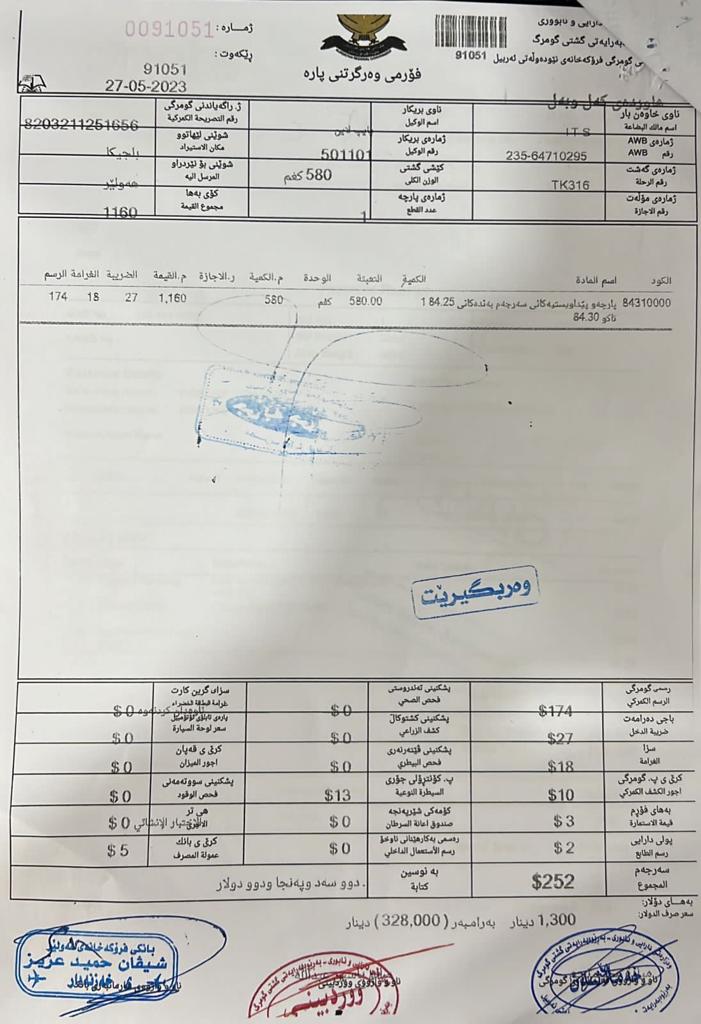 دارایی و ئابووری
بەڕێوەبەرایەتی گشتی گومرگ
گومرگی فڕۆکەخانەی نێودەوڵەتی ئەربیل
91051
ژمارە: 0091051
ڕێکەوت:
91051
27-05-2023
فۆرمی وەرگرتنی پارە
ناوی خاوەن بار
اسم مالك البضاعة
I T S
ناوی بریکار
اسم الوكيل
ژ. راگەیاندنی گومرگی
رقم التصريحة الكمركية
8203211251656
ژمارەی AWB
رقم AWB
235-64710295
ژمارەی بریکار
رقم الوكيل
501101
شوێنی لێهاتوو
مكان الاستيراد
بلجیکا
ژمارەی گەشت
رقم الرحلة
TK316
کێشی گشتی
الوزن الكلي
580 كغم
شوێنی بۆ نێردراو
المرسل اليه
هەولێر
ژمارەی مۆڵەت
رقم الاجازة
ژمارەی پارچە
عدد القطع
1
کۆی بەها
مجموع القيمة
1160
الكود اسم المادة الكمية التعبئة الوحدة م.الكمية ر.الاجازة م.القيمة الضريبة الغرامة الرسم
84310000 پارچەو پێداویستیەکانی سەرجەم بەندەکانی 84.25 1 580.00 کغم 580 1,160 27 18 174
تاکو 84.30
وەربگیرێت
رسمی گومرگی
الرسم الكمركي
$174
پشکنینی تەندروستی
فحص الصحي
$ 0
سزای گرین کارت
غرامة البطاقة الخضراء
$ 0
باجی دەرامەت
ضريبة الدخل
$27
پشکنینی کشتوکاڵ
كشف الزراعي
$ 0
پارەی تابلۆی ئۆتۆمبێل
سعر لوحة السيارة
$ 0
سزا
الغرامة
$18
پشکنینی ڤێتەرنەری
فحص البيطري
$ 0
کرێ ی قەپان
اجور الميزان
$ 0
کرێ ی پ. گومرگی
اجور الكشف الكمركي
$10
پ. کۆنترۆڵی جۆری
السيطرة النوعية
$13
پشکنینی سووتەمەنی
فحص الوقود
$ 0
بەهای فۆرم
قيمة الاستمارة
$ 3
کۆمەکی شێرپەنجە
صندوق اعانة السرطان
$ 0
هی تر
الاخرى
الاختبار الإنشائي $ 0
پولی دارایی
رسم الطابع
$ 2
رسمی بەکارهێنانی ناوخۆ
رسم الأستعمال الداخلي
$ 0
کرێ ی بانك
عمولة المصرف
$ 5
سەرجەم
المجموع
$252
بە نوسین
كتابة
دوو سەد وپەنجا ودوو دولار.
بەهای دۆلار:
سعر صرف الدولار:
1,300 دینار بەرامبەر (328,000) دینار
بانکی فڕۆکەخانەی هەولێر
شیڤان حمید عزیز
وردبینی